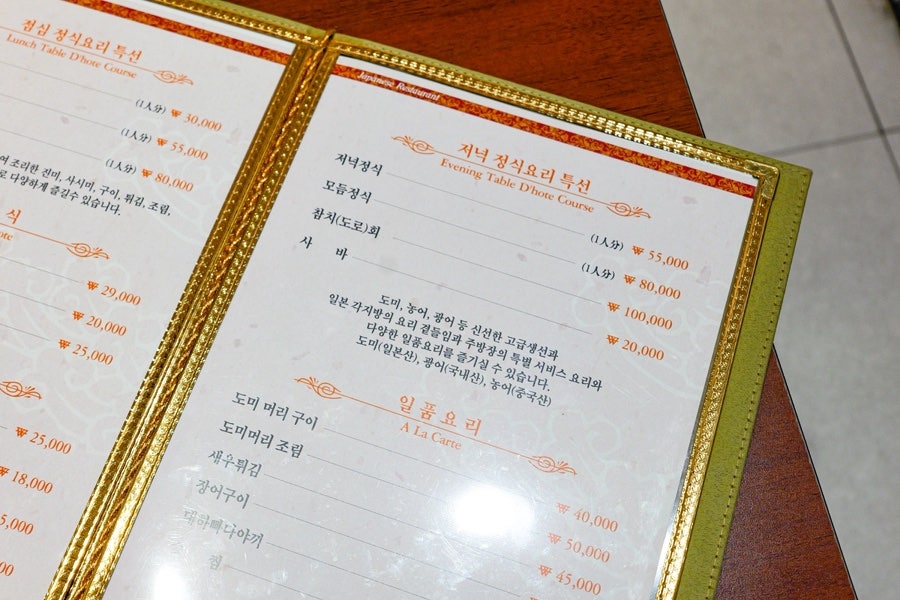 점심 정식요리 특선
Lunch Table D'hote Course
(1人分) ₩ 30,000
(1人分) ₩ 55,000
(1人分) ₩ 80,000
여 조리한 진미, 사시미, 구이, 튀김, 조림,
로 다양하게 즐길수 있습니다.
식
ote
₩ 29,000
₩ 20,000
₩ 25,000
₩ 25,000
₩ 18,000
5,000
Japanese Restaurant
저녁 정식요리 특선
Evening Table D'hote Course
저녁정식 (1人分) ₩ 55,000
모듬정식 (1人分) ₩ 80,000
참치(도로)회 ₩ 100,000
사 바 ₩ 20,000
도미, 농어, 광어 등 신선한 고급생선과
일본 각지방의 요리 곁들임과 주방장의 특별 서비스 요리와
다양한 일품요리를 즐기실 수 있습니다.
도미(일본산), 광어(국내산), 농어(중국산)
일품요리
A La Carte
도미 머리 구이 ₩ 40,000
도미머리 조림 ₩ 50,000
새우튀김 ₩ 45,000
장어구이
대하빠다야끼